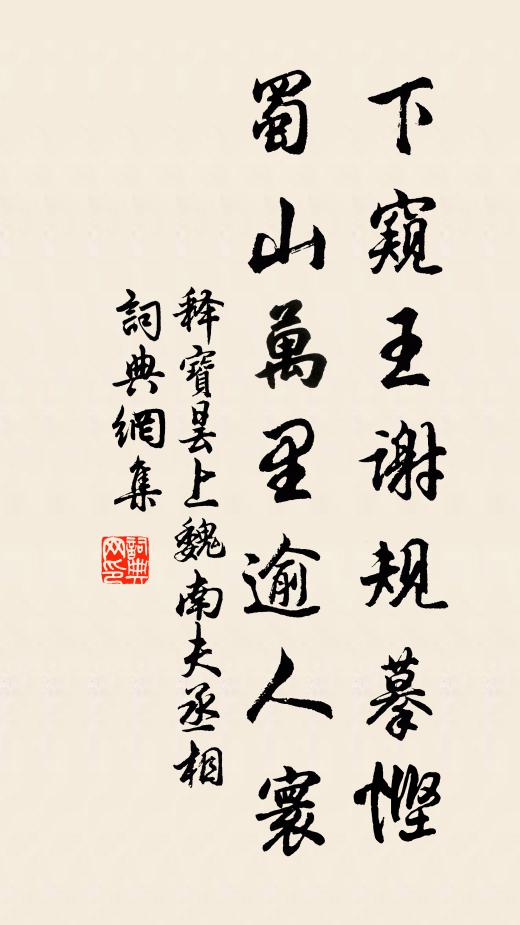 下窺王謝規摹慳
蜀山萬里逾人寰
释寶曇上魏南夫丞相
詞典網集
詞典網印